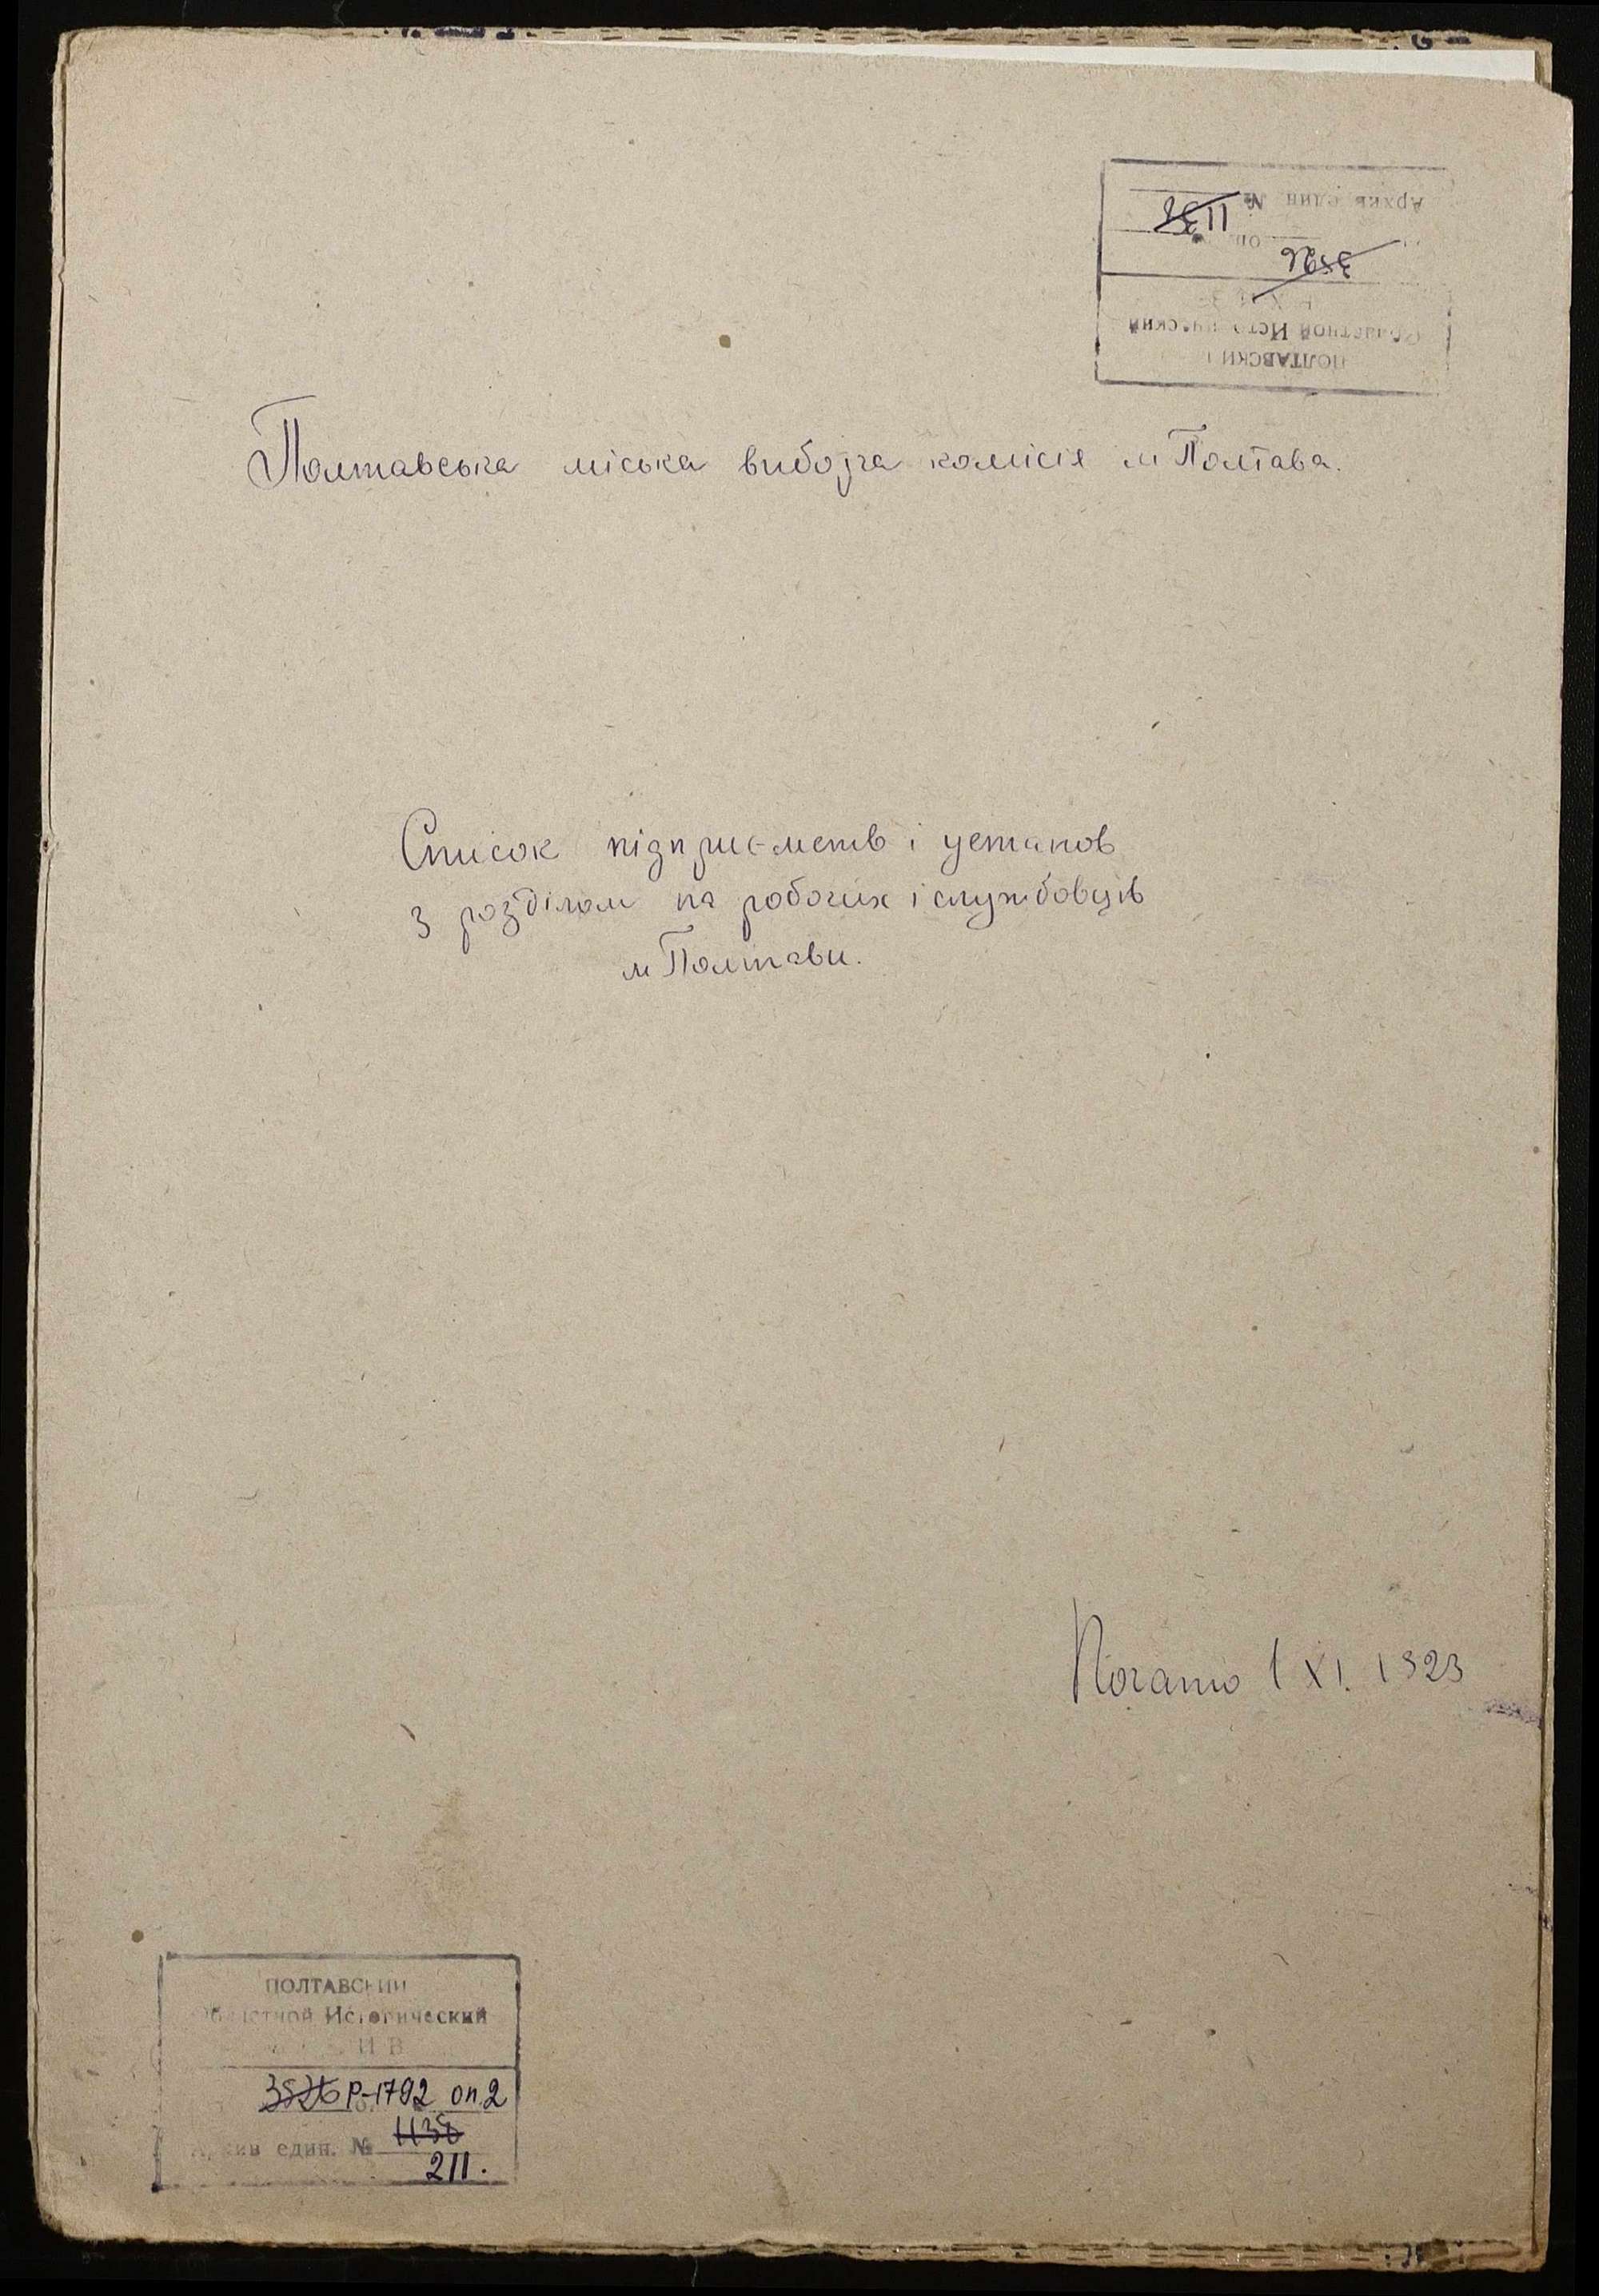 Архив един №
1138
оп.
3526
Областной Исторический
ПОЛТАВСКИЙ
Полтавська міська виборча комісія м Полтава.
Список підприємств і установ
з розділом на робочих і службовців
м Полтави.
Почато 1 XI. 1923
ПОЛТАВСКИЙ
Областной Исторический
АРХИВ
3526 Р-1792 оп.2
Архив един. № 1138
211.